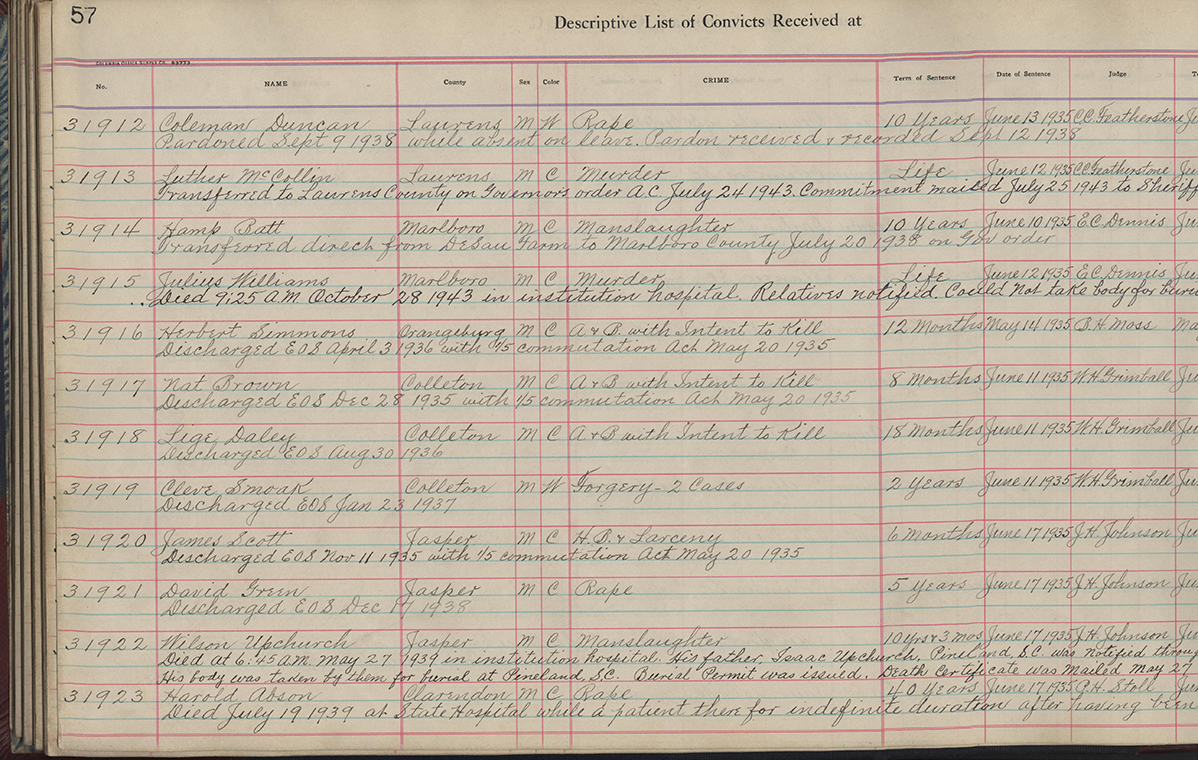 57
Descriptive List of Convicts Received at
No. NAME County Sex Color CRIME Term of Sentence Date of Sentence Judge
31912 Coleman Duncan Laurens M W Rape 10 Years June 13 1935 C.C. Featherstone
Pardoned Sept 9 1938 while absent on leave. Pardon received & recorded Sept 12 1938
31913 Luther McCollin Laurens M C Murder Life June 12 1935 C.C. Featherstone
Transferred to Laurens County on Governor's order A.C. July 24 1943. Commitment mailed July 25 1943 to Sheriff
31914 Hamp Patt Marlboro M C Manslaughter 10 Years June 10 1935 E.C. Dennis
Transferred direct from DeSau Farm to Marlboro County July 20 1938 on Gov order
31915 Julius Williams Marlboro M C Murder Life June 12 1935 E.C. Dennis
Died 9:25 A.M October 28 1943 in institution hospital. Relatives notified. Could not take body for
31916 Herbert Simmons Orangeburg M C A & B. with Intent to Kill 12 Months May 14 1935 B.H. Moss
Discharged EOS April 3 1936 with 1/5 commutation Act May 20 1935
31917 Nat Brown Colleton M C A & B with Intent to Kill 8 months June 11 1935 W.H. Grimball
Discharged EOS Dec 28 1935 with 1/5 commutation Act May 20 1935
31918 Lige Daley Colleton M C A & B with Intent to Kill 18 Months June 11 1935 W.H. Grimball
Discharged EOS Aug 30 1936
31919 Cleve Smoak Colleton M W Forgery - 2 Cases 2 Years June 11 1935 W.H. Grimball
Discharged EOS Jan 23 1937
31920 James Scott Jasper M C H.B. & Larceny 6 months June 17 1935 J.H. Johnson
Discharged EOS Nov 11 1935 with 1/5 commutation Act May 20 1935
31921 David Green Jasper M C Rape 5 Years June 17 1935 J.H. Johnson
Discharged EOS Dec 17 1938
31922 Wilson Upchurch Jasper M C Manslaughter 10 yrs & 3 mos June 17 1935 J.H. Johnson
Died at 6:45 A.M. May 27 1939 in institution hospital. His father, Isaac Upchurch, Pineland, S.C. was notified
His body was taken by them for burial at Pineland, S.C. Burial Permit was issuid. Death Certificate was Mailed May 27
31923 Harold Abson Clarendon M C Rape 40 Years June 17 1935 P.H. Stoll
Died July 19 1939 at State Hospital while a patient there for indefinite duration after having been